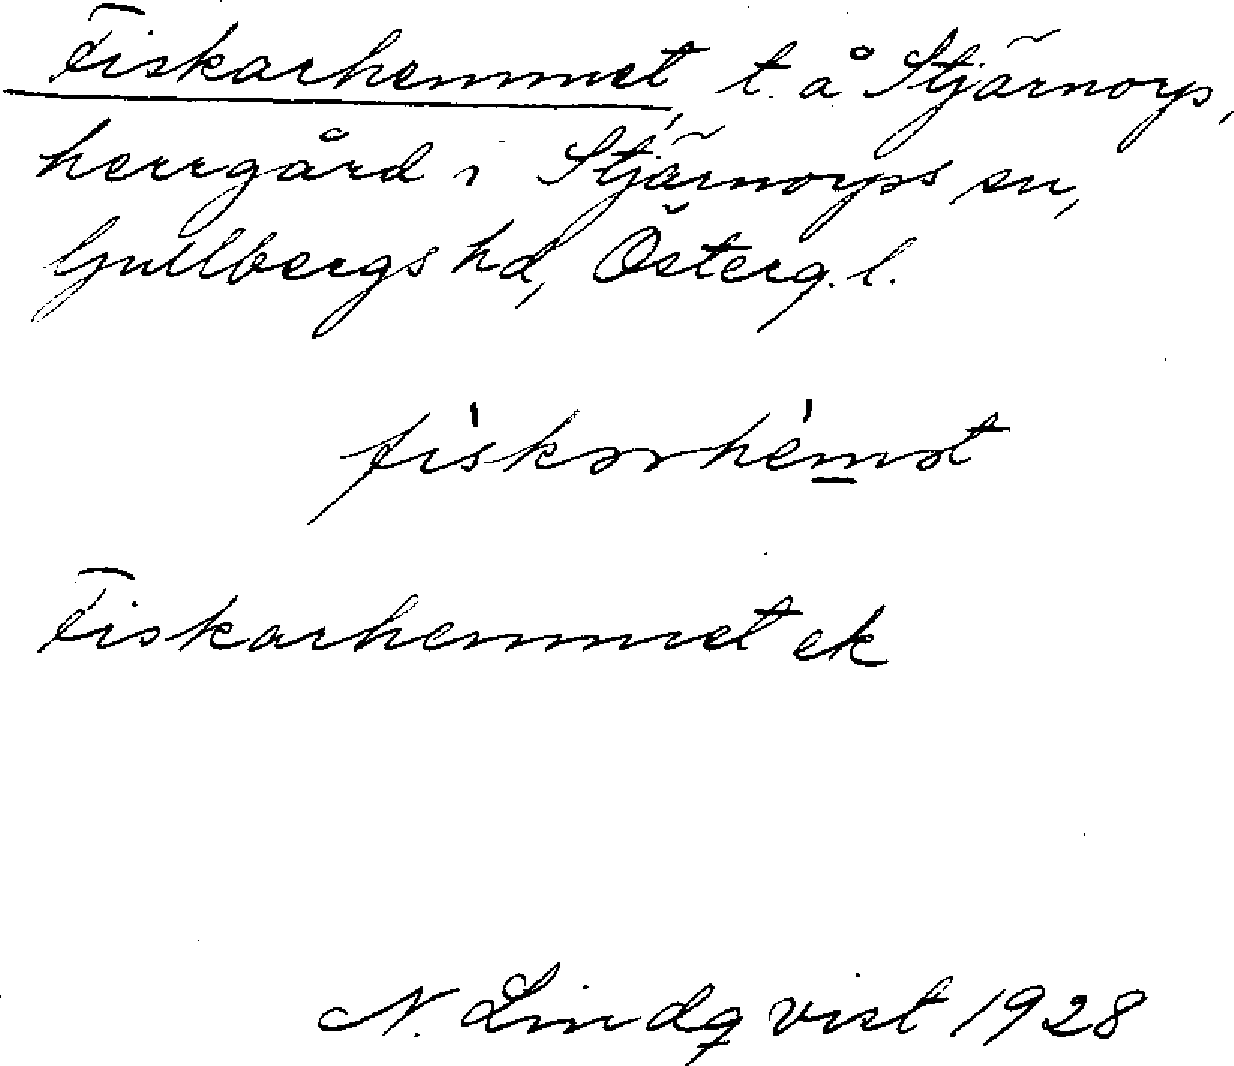 Fiskarhemmet, t. å Stjärnorp,
herrgård i Stjärnorps sn,
Gullbergs hd, Österg. l.
fiskərhemət
Fiskarhemmet ek
N. Lindqvist 1928